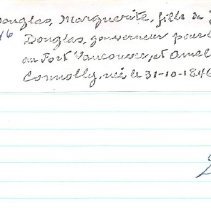 Douglas, Marguerite, fille de
46 Douglas, gouverneur pour
au Fort Vancouver, et Amel
Connolly, née le 31-10-1846